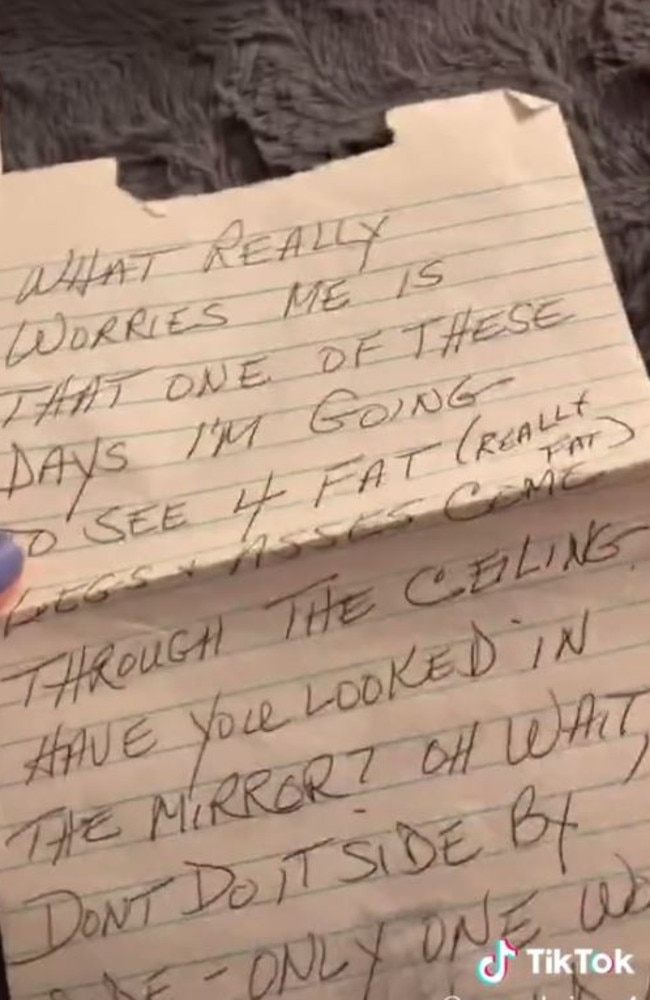 WHAT REALLY
WORRIES ME IS
THAT ONE OF THESE
DAYS I'M GOING
TO SEE 4 FAT (REALLY
FAT)
LEGS + ASSES COME
THROUGH THE CEILING.
HAVE YOU LOOKED IN
THE MIRROR? OH WAIT,
DONT DO IT SIDE BY
- ONLY ONE
TikTok